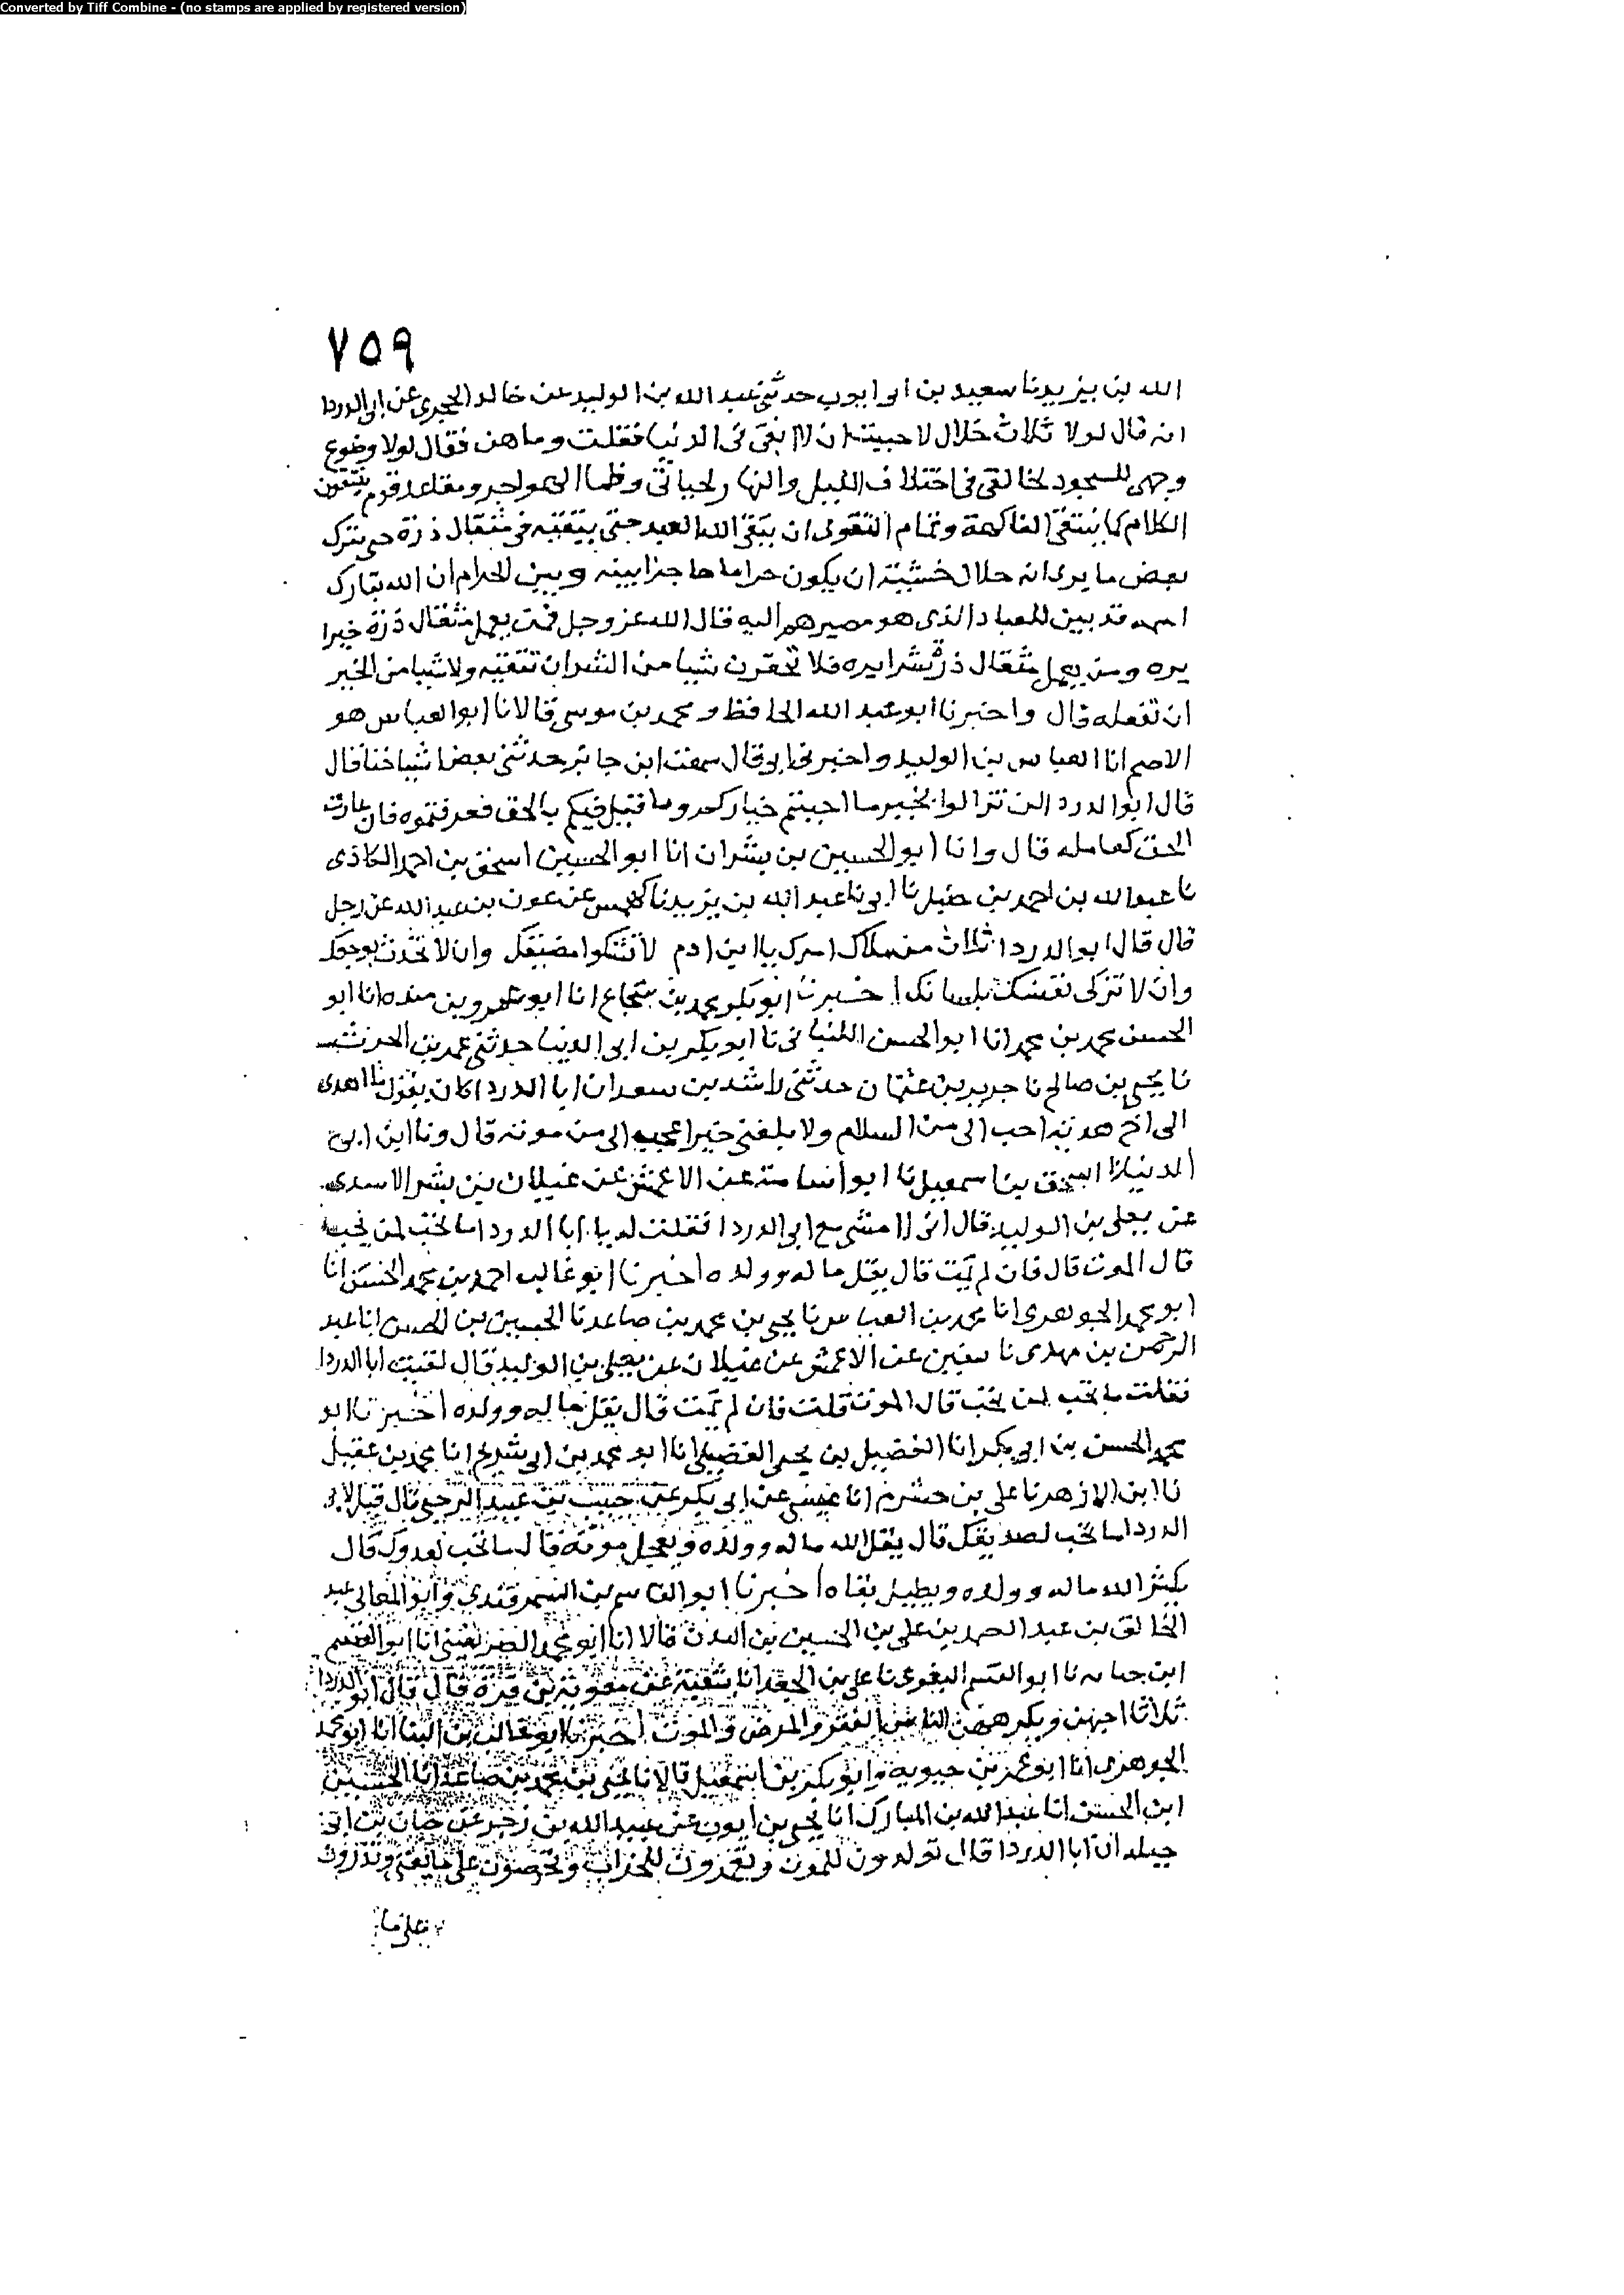 Converted by Tiff Combine - (no stamps are applied by registered version)
٧٥٩
الله بن يزيد نا سعيد بن ابى ايوب حدثنى عبد الله بن الوليد عن خالد الحجرى عن ابى الدردا
انه قال لولا ثلاث خلال لاحببت ان لا ابقى فى الدنيا فقلت وما هن فقال لولا وضوع
وجهى للسجود لخالقى فى اختلاف الليل والنهار لحياتى وظما الهواجر ومقاعد قوم ينتقون
الكلام كما ينتقى الفاكهة وتمام التقوى ان يتقى الله العبد حتى يتقيه فى مثقال ذرة حتى يترك
بعض ما يرى انه حلال خشية ان يكون حراما حاجزا بينه وبين الحرام ان الله تبارك
اسمه قد بين للعباد الذى هو مصيرهم اليه قال الله عز وجل فمن يعمل مثقال ذرة خيرا
يره ومن يعمل مثقال ذرة شرا يره فلا تحقرن شيا من الشر ان تتقيه ولا شيا من الخير
ان تفعله قال واخبرنا ابو عبد الله الحافظ ومحمد بن موسى قالا نا ابو العباس هو
الاصم انا العباس بن الوليد واخبرنى ابى قال سمعت ابن جابر حدثنى بعض اشياخنا قال
قال ابو الدردا لن تزالوا بخير ما احببتم خياركم وما قيل فيكم بالحق فعرفتموه فان عارف
الحق كعامله قال وانا ابو الحسين بن بشران انا ابو الحسين اسحق بن احمد الكاذى
نا عبد الله بن احمد بن حنبل نا ابى نا عبد الله بن يزيد نا كهمس عن عون بن عبد الله عن رجل
قال قال ابو الدردا ثلاث من ملاك امرك يا ابن ادم لا تشكوا مصيبتك وان لا تحدث بوجعك
وان لا تزكى نفسك بلسانك اخبرنا ابو بكر محمد بن شجاع انا ابو عمرو بن منده انا ابو
الحسن محمد بن محمد انا ابو الحسن اللنبانى نا ابو بكر بن ابى الدنيا حدثنى محمد بن الحرث
نا يحيى بن صالح نا جرير بن عثمان حدثنى راشد بن سعد ان ابا الدردا كان يقول ما اهدى
الى اخ هدية احب الى من السلام ولا بلغنى خبر اعجب الى من موته قال ونا ابن ابى
الدنيا نا اسحق بن اسمعيل نا ابو اسامة عن الاعمش عن غيلان بن بشر الاسدى
عن يعلى بن الوليد قال انى لا مشى مع ابى الدردا فقلت له يا ابا الدردا ما تحب لمن تحب
قال الموت قال فان لم يمت قال يقل ماله وولده اخبرنا ابو غالب احمد بن محمد الحسن انا
ابو محمد الجوهرى انا محمد بن العباس نا يحيى بن محمد بن صاعد نا الحسين بن الحسن انا عبد
الرحمن بن مهدى نا سفين عن الاعمش عن غيلان عن يعلى بن الوليد قال لقيت ابا الدردا
فقلت ما تحب لمن تحب قال الموت قلت فان لم يمت قال يقل ماله وولده اخبرنا ابو
محمد الحسن بن ابى بكر انا الفضيل بن يحيى الفضيلى انا ابو محمد بن ابى شريح انا محمد بن عقيل
نا ابن الازهر نا على بن خشرم انا عيسى عن ابى بكر عن حبيب بن عبيد الرحبى قال قيل لابى
الدردا ما تحب لصديقك قال يقل الله ماله وولده ويعجل موته قال ما تحب لعدوك قال
يكثر الله ماله وولده ويطيل بقاه اخبرنا ابو القاسم بن السمرقندى وابو المعالى عبد
الخالق بن عبد الصمد بن على بن الحسين بن البدن قالا انا ابو محمد الصريفينى انا ابو القسم
ابن حبابه نا ابو القسم البغوى نا على بن الجعد انا شعبة عن معوية بن قرة قال قال ابو الدردا
ثلاثا احبهن ويكرههن الناس الفقر والمرض والموت اخبرنا ابو غالب بن البنا انا ابو محمد
الجوهرى انا ابو عمر بن حيوية وابو بكر بن اسمعيل قالا نا يحيى بن محمد بن صاعد انا الحسين
ابن الحسن انا عبد الله بن المبارك انا يحيى بن ايوب عن عبيد الله بن زحر عن حبان بن ابى
جبله ان ابا الدردا قال تولدون للموت وتعمرون للخراب وتحرصون على ما يفنى وتذرون
على ما